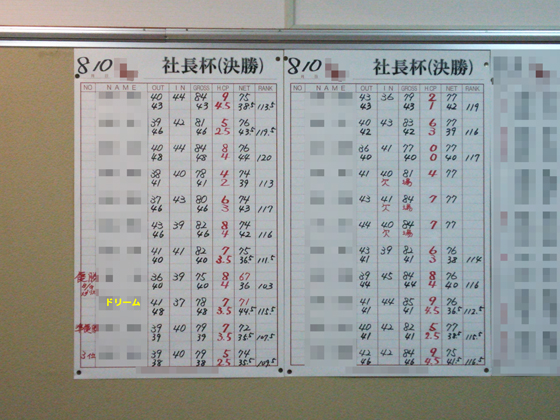 8 10 社長杯(決勝)
NO. NAME OUT IN GROSS HCP NET RANK
40 44 84 9 75
43 43 4.5 38.5 113.5
39 42 81 5 76
46 46 2.5 43.5 119.5
40 44 84 8 76
48 48 4 44 120
38 40 78 4 74
41 41 2 39 113
37 43 80 6 74
46 46 3 43 117
43 39 82 8 74
46 46 4 42 116
41 41 82 7 75
40 40 3.5 36.5 111.5
優勝 36 39 75 8 67
40 40 4 36 103
ドリーム 41 37 78 7 71
48 48 3.5 44.5 115.5
準優勝 39 40 79 7 72
39 39 3.5 35.5 107.5
3位 39 40 79 5 74
38 38 2.5 35.5 109.5
8 10 社長杯(決勝)
NO. NAME OUT IN GROSS HCP NET RANK
43 36 79 2 77
43 43 1 42 119
40 43 83 6 77
42 42 3 39 116
36 41 77 0 77
40 40 0 40 117
41 40 81 4 77
欠 場
43 41 84 7 77
欠 場
44 40 84 7 77
欠 場
43 39 82 6 76
41 41 3 38 114
39 45 84 8 76
44 44 4 40 116
41 44 85 9 76
41 41 4.5 36.5 112.5
40 42 82 5 77
41 41 2.5 38.5 115.5
42 42 84 9 75
46 46 4.5 41.5 116.5